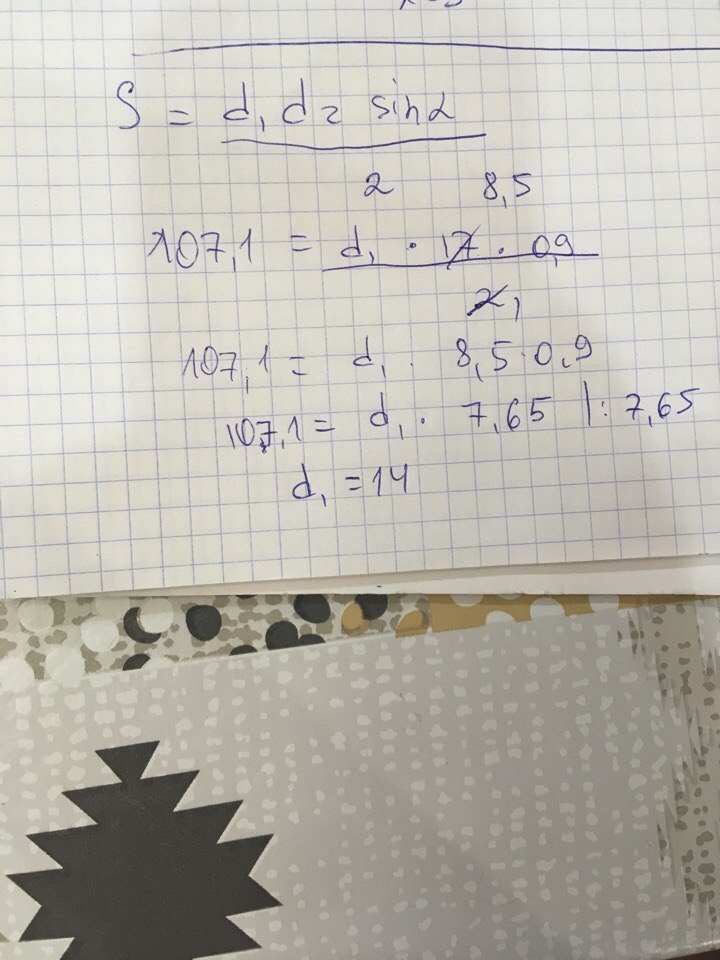 S = d₁ d₂ sin α
2 8,5
107,1 = d₁ · 17 · 0,9
2 1
107,1 = d₁ · 8,5 · 0,9
107,1 = d₁ · 7,65 |: 7,65
d₁ = 14